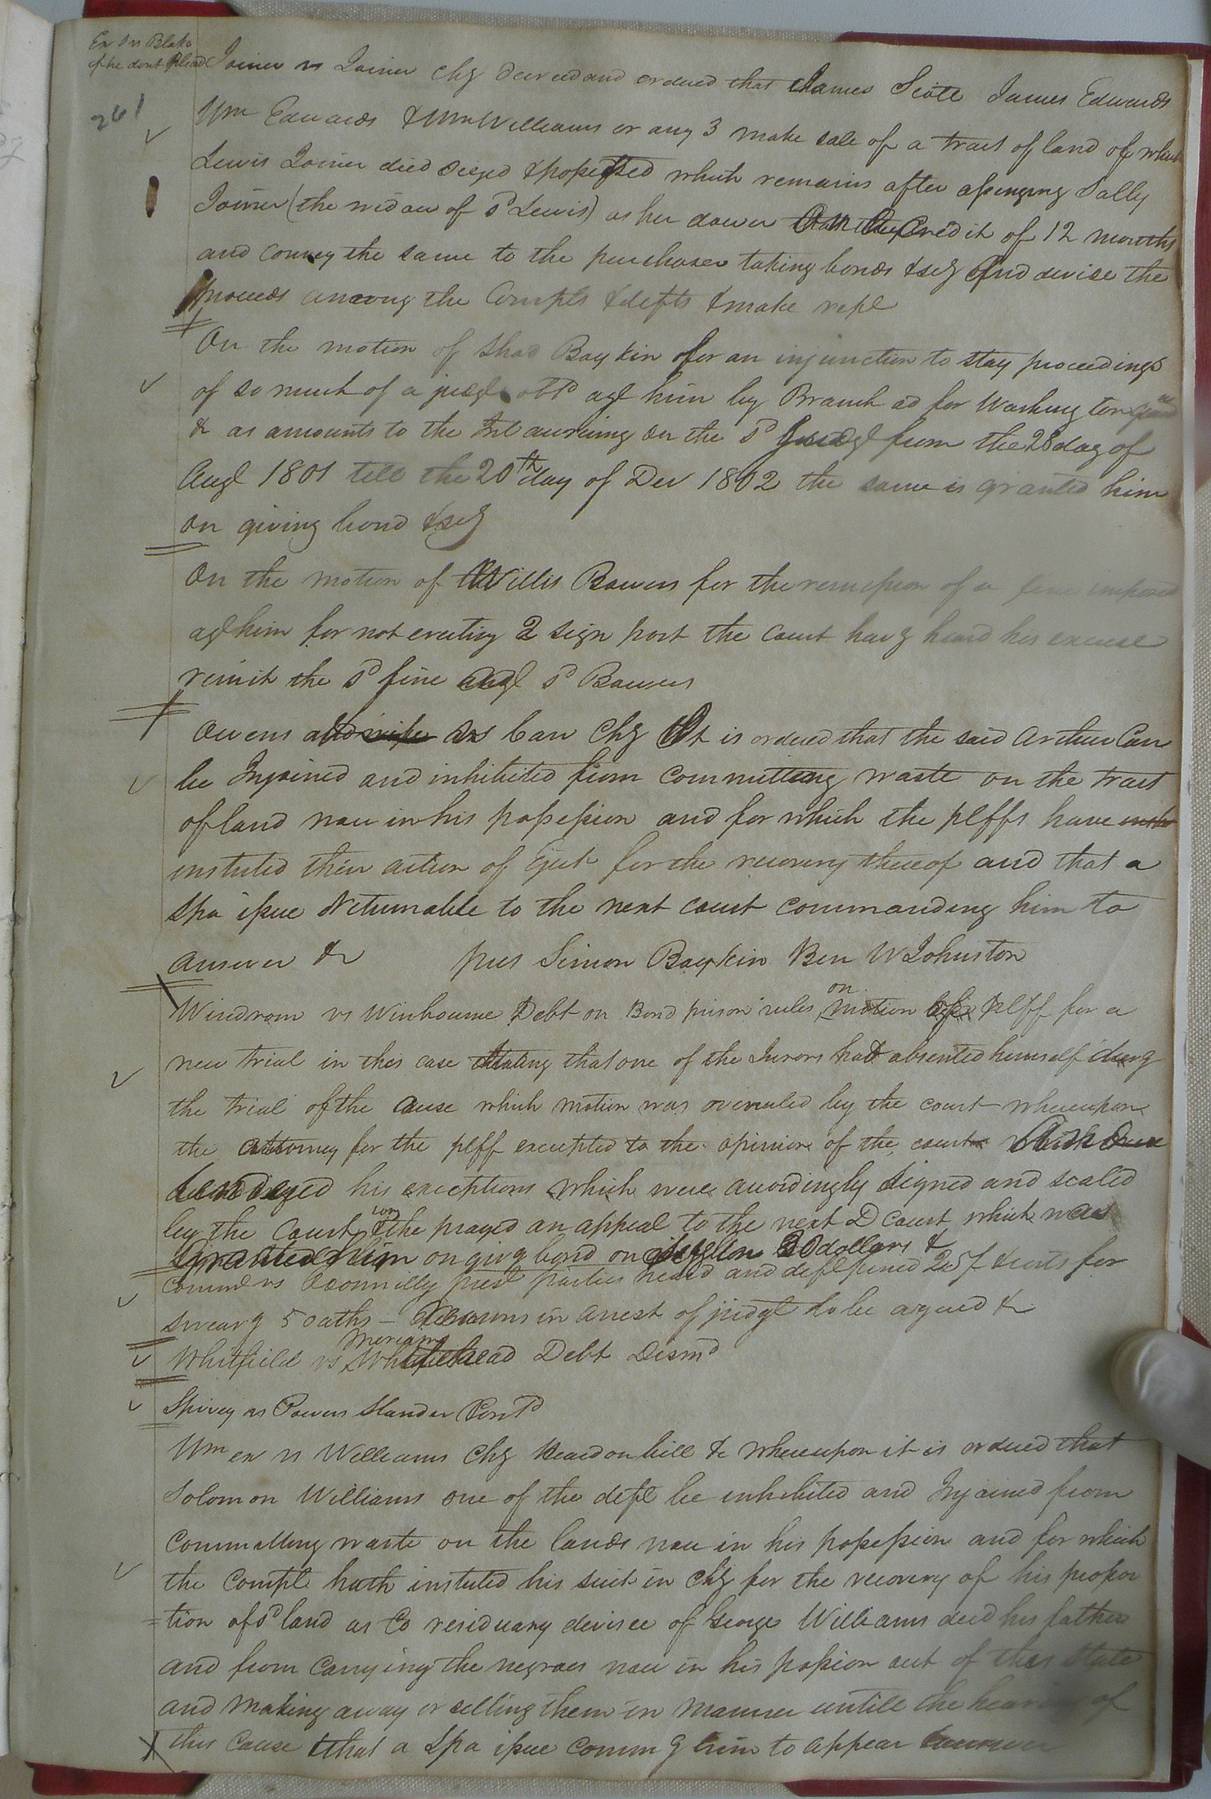 Ex on Blake
if he dont plead
261
Joiner vs Joiner Chy decreed and ordered that James Scott James Edwards
Wm Edwards & Wm Williams or any 3 make sale of a tract of land of which
Lewis Joiner died seized & possessed which remains after assigning Sally
Joiner (the widow of sd Lewis) as her dower on the Credit of 12 months
and convey the same to the purchaser taking bonds & scy and devise the
proceeds among the Compls & defts & make rept
On the motion of Shad Boykin for an injunction to stay proceedings
of so much of a judgt obtd agt him by Branch ad for Washington
& as amounts to the Int accruing on the sd Judgt from the 28 day of
Augt 1801 till the 20th day of Dev 1802 the same is granted him
on giving bond & scy
On the motion of Willis Bowers for the remission of a fine imposed
agt him for not erecting 2 sign post the court havg heard his excuse
remit the sd fine agt sd Bowers
Owens and wife vs Carr Chy It is ordered that the said Arthur Carr
be Injoined and inhibited from committing waste on the tract
of land now in his possession and for which the plffs have
instuted their action of Eject for the recovery thereof and that a
spa issue Returnable to the next court commanding him to
answer &c pres Simon Boykin Ben W Johnston
Windrom vs Winbourne Debt on Bond prison rules on motion of plff for a
new trial in this case stating that one of the Jurors had absented himself durg
the trial of the cause which motion was overruled by the court whereupon
the attorney for the plff excepted to the opinion of the court
tendered his exceptions which were accordingly signed and sealed
by the Court & he prayed an appeal to the next D Court which was
granted him on givg bond on dollars &
Comm vs Oconnelly prest parties heard and deft fined 2.57 cents for
swearg 5 oaths – Reasons in arrest of judgt to be argued &
Whitfield vs Merian Whitehead Debt Dismd
Spivey vs Powers Slander Contd
Wm ex vs Williams Chy Heard on bill & whereupon it is ordered that
Solomon Williams one of the deft be inhibited and Injoined from
committing waste on the lands now in his possession and for which
the Complt hath instuted his suit in Chy for the recovery of his propor
=tion of sd land as Co residuary devisee of George Williams decd his father
and from carrying the negroes now in his possion out of this State
and making away or selling them in manner untill the hearing of
this Cause that a spa issue commg him to appear